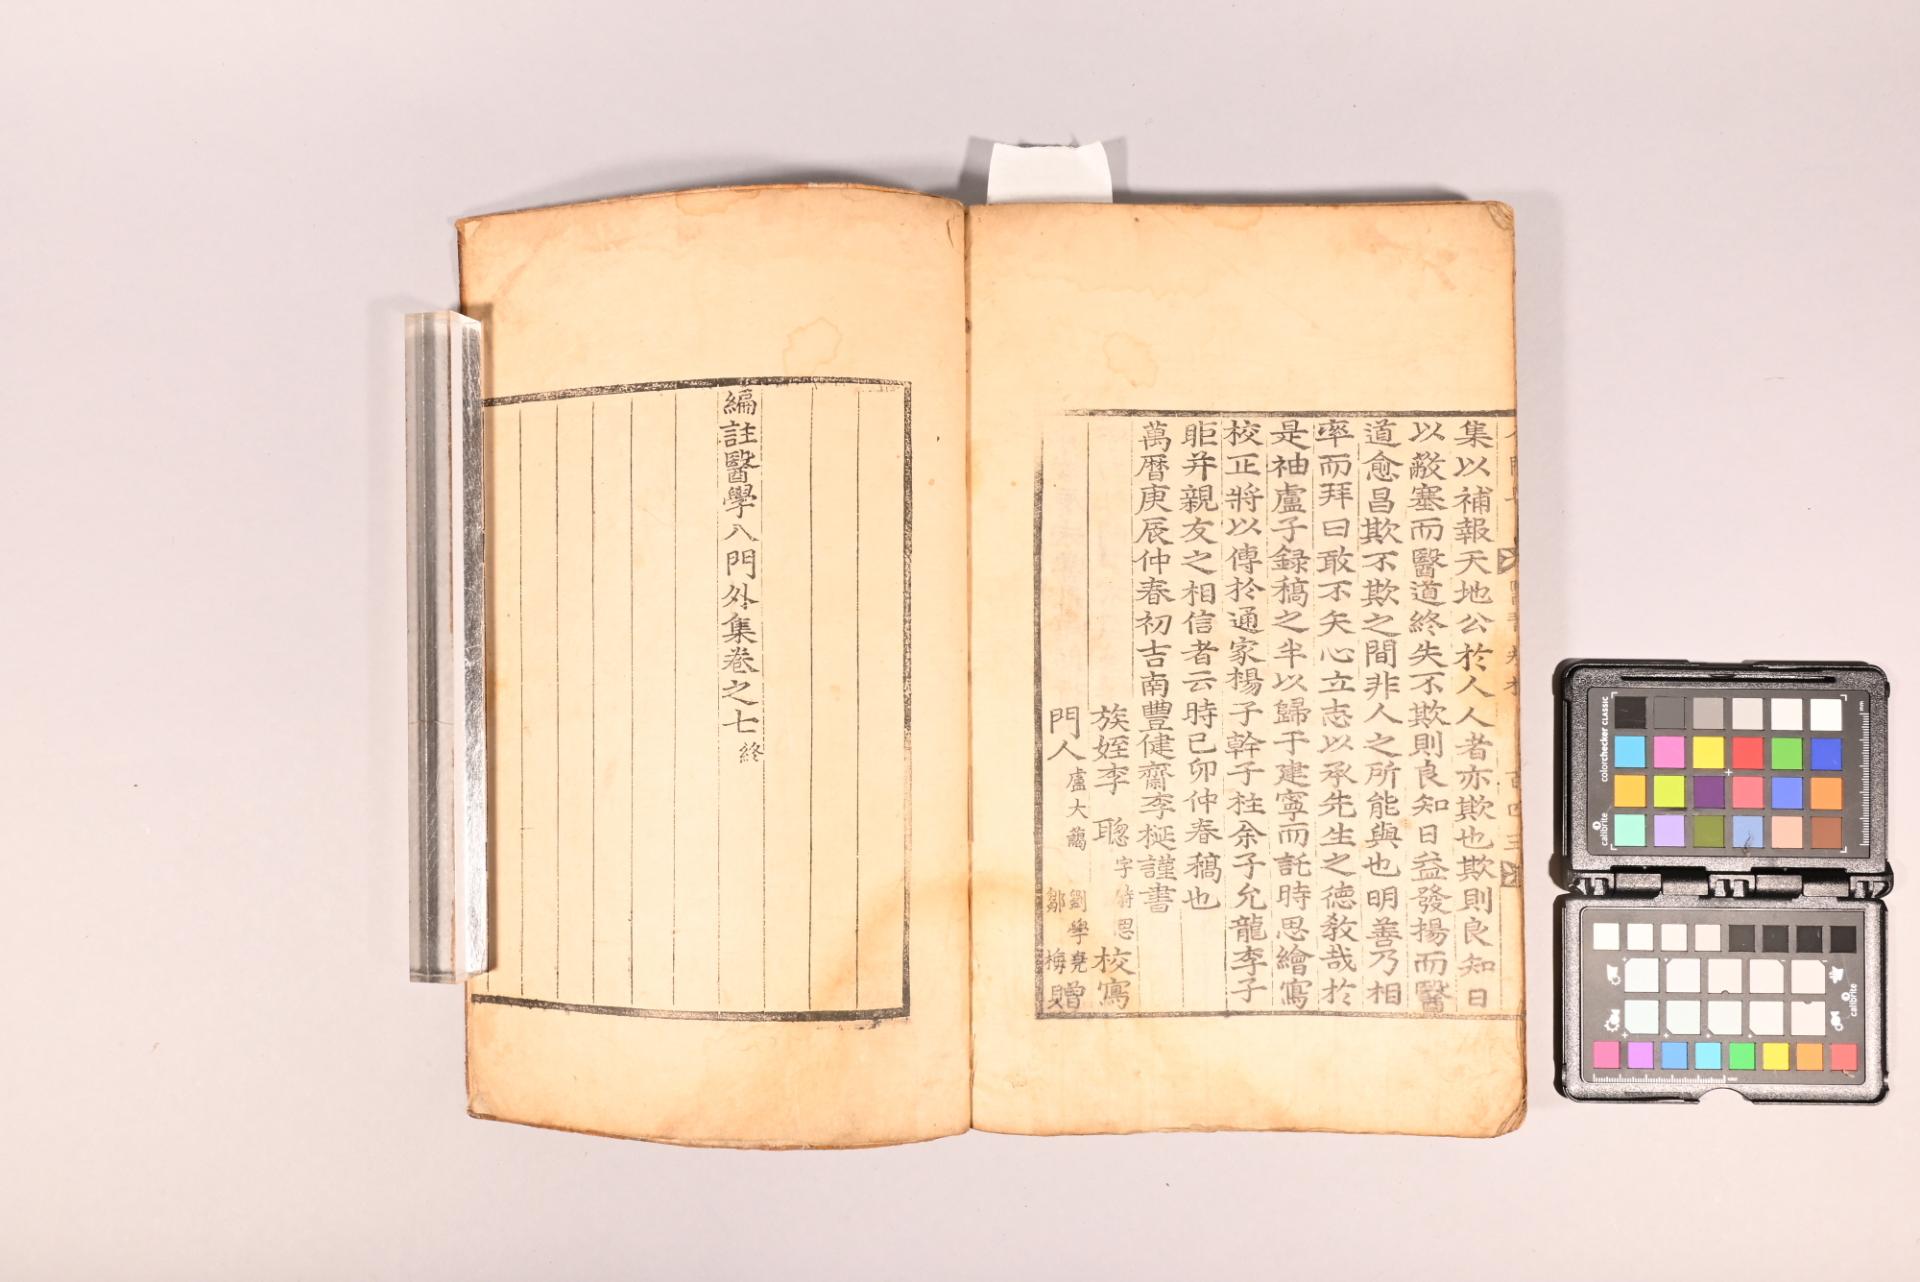 集以補報天地公於人人者亦欺也欺則良知日
以蔽塞而醫道終失不欺則良知日益發揚而醫
道愈昌欺不欺之間非人之所能與也明善乃相
率而拜曰敢不矢心立志以承先生之德教哉於
是袖盧子録稿之半以歸于建寧而託時思繪寫
校正將以傳於通家楊子幹子柱余子允龍李子
眂并親友之相信者云時已卯仲春稿也
萬曆庚辰仲春初吉南豐健齋李梴謹書
族姪李 聰 字時思 校寫
門人 盧大藹 劉學堯 鄒 梅 贈
編註醫學八門外集卷之七 終
colorchecker CLASSIC
calibrite
calibrite